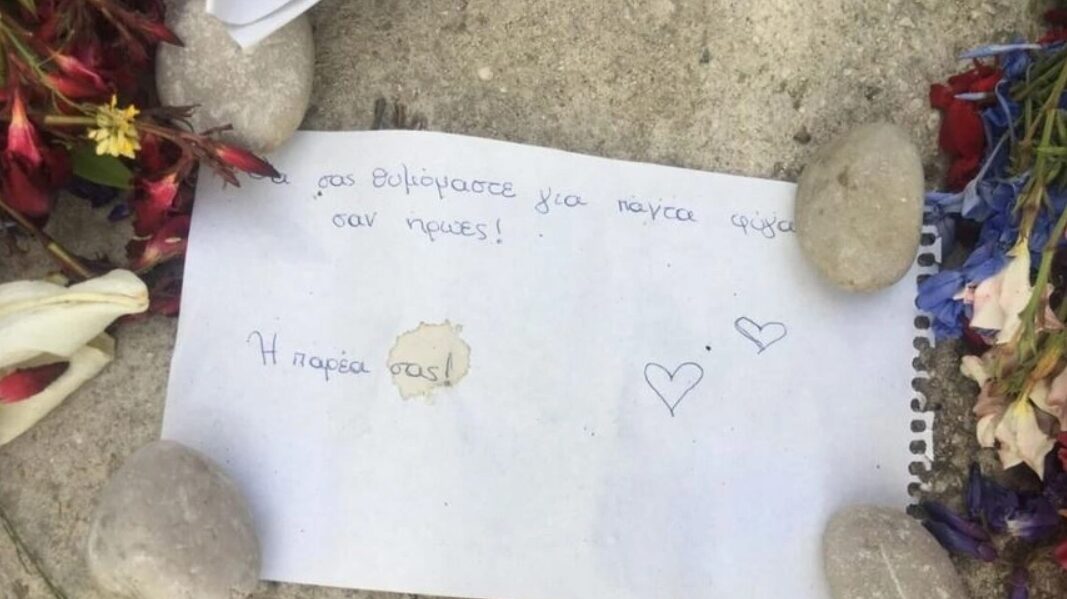 Θα σας θυμόμαστε για πάντα φύγα
σαν ήρωες!
Η παρέα σας!